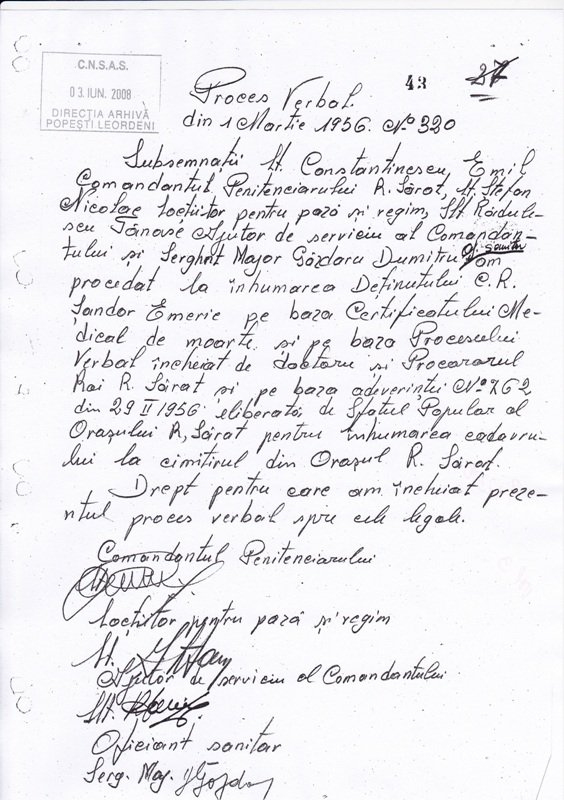 C.N.S.A.S.
03. IUN. 2008
DIRECŢIA ARHIVĂ
POPEŞTI LEORDENI
43
27
Proces Verbal
din 1 Martie 1956. Nº 320
Subsemnații Lt. Constantinescu Emil
Comandantul Penitenciarului R. Sărat, Lt. Ștefan
Nicolae Locțiitor pentru pază și regim, Slt. Rădule-
scu Tănase Ajutor de serviciu al Comandan-
tului și Serghnt Major Gözdaru Dumitru Of. sanitar am
procedat la înhumarea Deținutului C.R.
Șandor Emeric pe baza Certificatului Me-
dical de moarte și pe baza Procesului
Verbal încheiat de doctoru și Procurorul
Rai R. Sărat și pe baza adeverinței Nº 762
din 29 II 1956 eliberată de Sfatul Popular al
Orașului R. Sărat pentru înhumarea cadavru-
lui la cimitirul din Orașul R. Sărat.
Drept pentru care am încheiat preze-
ntul proces verbal spre cele legale.
Comandantul Penitenciarului
Locțiitor pentru pază și regim
Lt.
Ajutor de serviciu al Comandantului
Slt.
Oficiant sanitar
Serg. Maj.